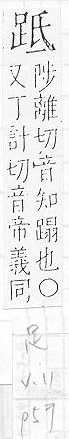 䟡
陟離切音知蹋也○
又丁計切音帝義同
足
v.11
p59